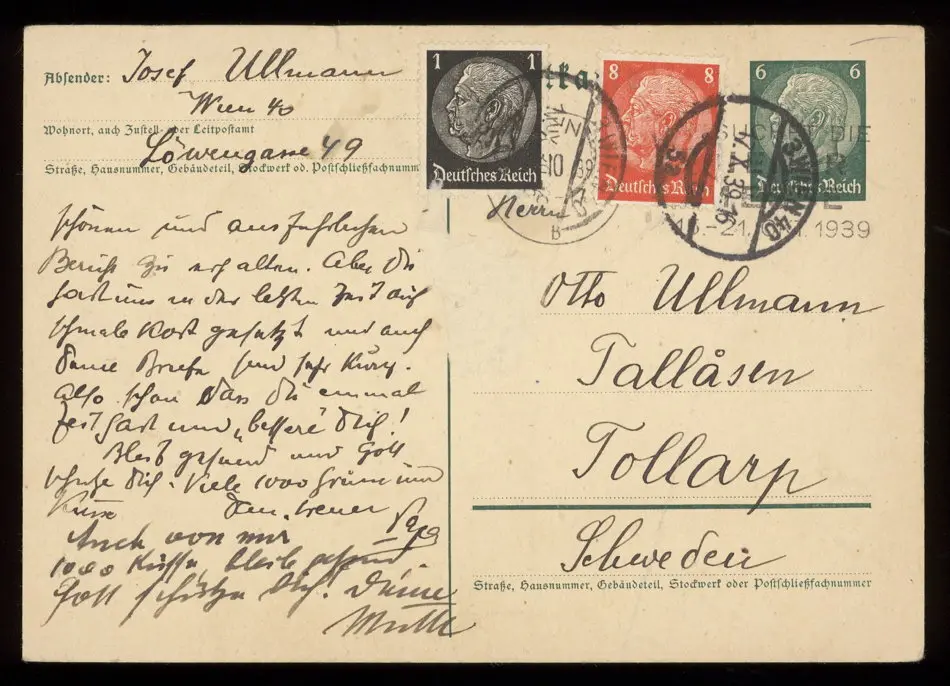 Absender: Josef Ullmann
Wien 40
Wohnort, auch Zustell- oder Leitpostamt
Löwengasse 49
Straße, Hausnummer, Gebäudeteil, Stockwerk od. Postschließfachnumm
1 1
Deutsches Reich
8 8
Deutsches Reich
6 6
Deutsches Reich
WIEN 40
-7.X.39-16
1939
B
schönen und ausführlichen
Bericht zu erhalten. Aber Du
hast uns in der letzten Zeit auf
schmale Kost gesetzt und auch
Deine Briefe sind sehr kurz.
Also schau dass Du einmal
Zeit hast und „bessere Dich!
Bleib gesund und Gott
schütze Dich. Viele 1000 Grüsse und
Küsse Dein treuer
Papa
Auch von mir
1000 Küsse, bleib gesund
Gott schütze Dich. Deine
Mutti
Herrn
Otto Ullmann
Tallåsen
Tollarp
Schweden
Straße, Hausnummer, Gebäudeteil, Stockwerk oder Postschließfachnummer